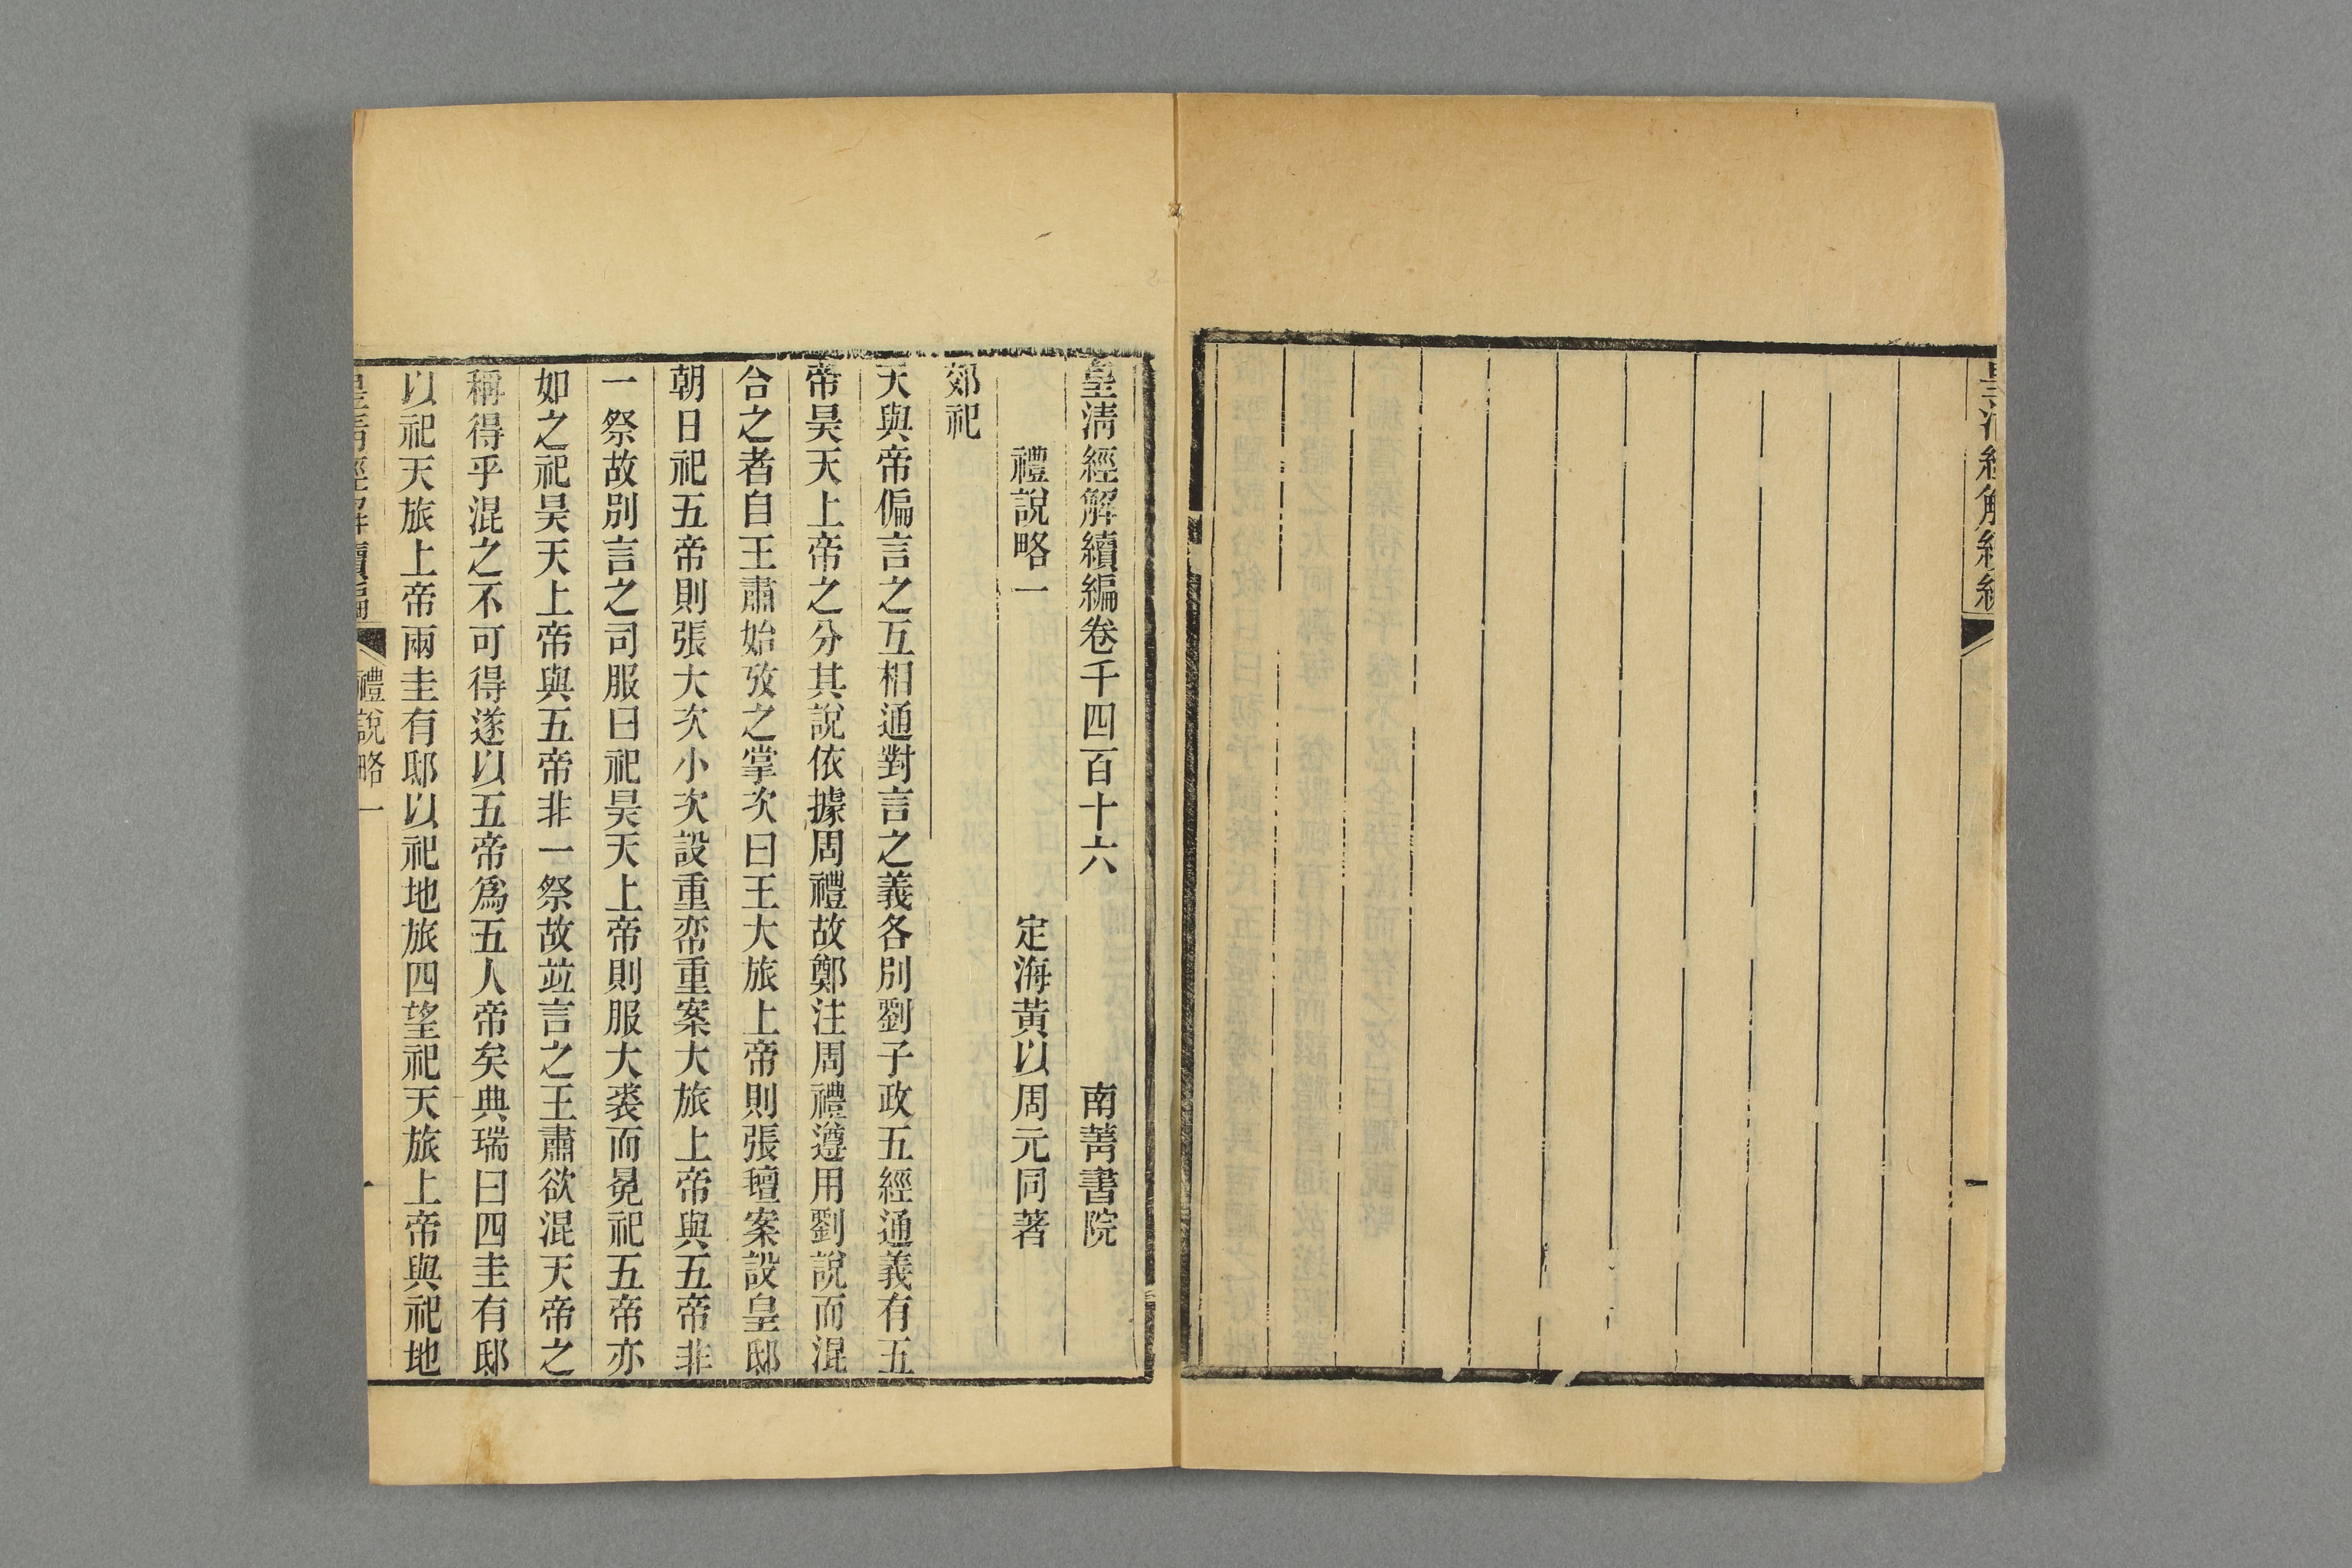 皇清經解續編
一
皇清經解續編卷千四百十六　南菁書院
禮說略一　定海黃以周元同著
郊祀
天與帝偏言之互相通對言之義各別劉子政五經通義有五
帝昊天上帝之分其說依據周禮故鄭注周禮遵用劉說而混
合之者自王肅始攷之掌次曰王大旅上帝則張氊案設皇邸
朝日祀五帝則張大次小次設重帟重案大旅上帝與五帝非
一祭故別言之司服曰祀昊天上帝則服大裘而冕祀五帝亦
如之祀昊天上帝與五帝非一祭故竝言之王肅欲混天帝之
稱得乎混之不可得遂以五帝爲五人帝矣典瑞曰四圭有邸
以祀天旅上帝兩圭有邸以祀地旅四望祀天旅上帝與祀地
皇清經解續編　禮說略一　一